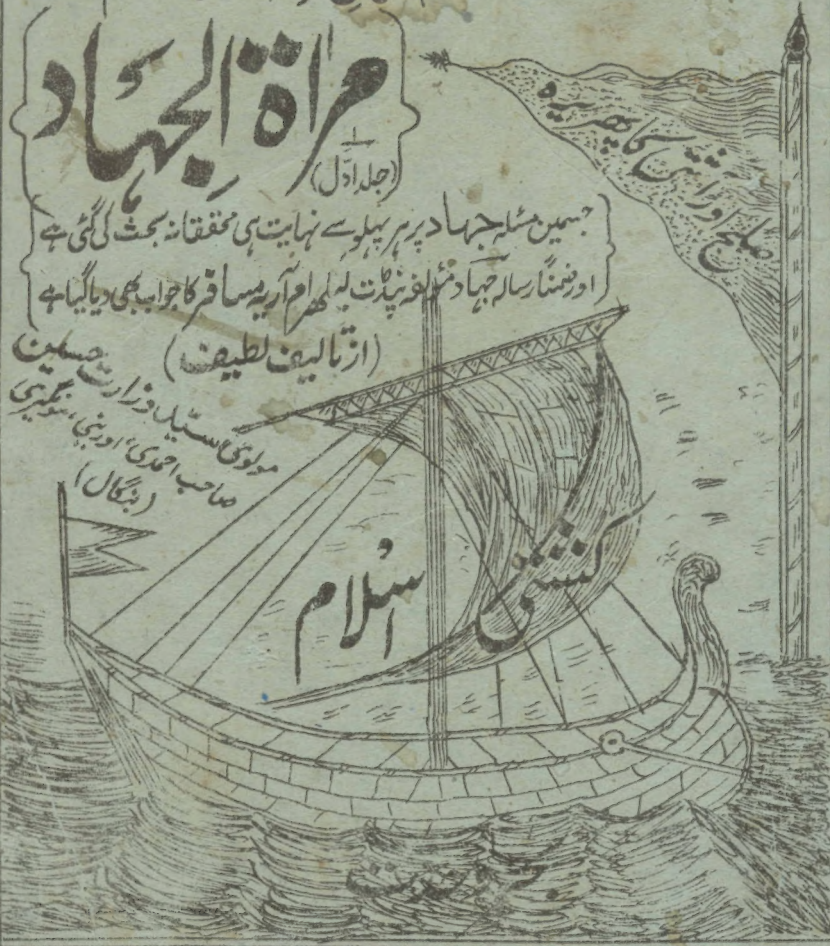 مراٰۃ الجہاد
(جلد اوّل)
صلح اور آشتی کا پھریرہ
جسمین مسئلہ جہاد پر ہر پہلو سے نہایت ہی محققانہ بحث کی گئی ہے
اور ضمناً رسالہ جہاد مؤلفہ پنڈت لیکھرام آریہ مسافر کا جواب بھی دیا گیا ہے
(از تالیف لطیف)
مولوی سید وزارت حسین
صاحب احمدی، اورینی، مونگیری
(بنگال)
کشتی
اسلام